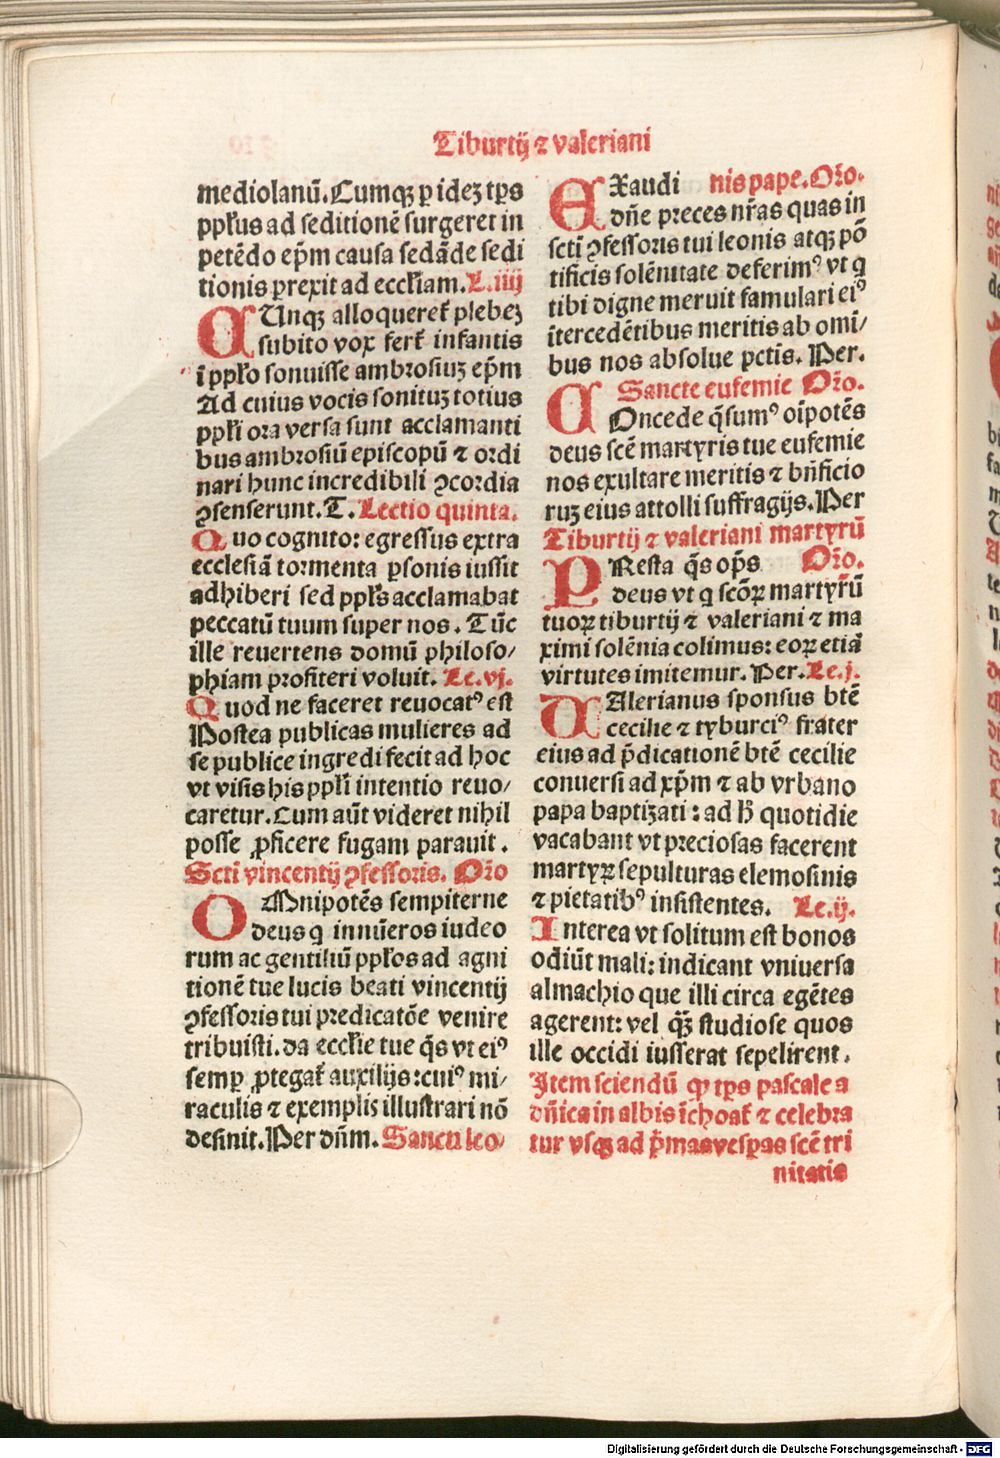 Tiburtij ⁊ valeriani
mediolanū. Cumqꝫ ꝑ ideꝫ tp̄s
ppl̄us ad seditionē surgeret in
petēdo ep̄m causa sedāde sedi
tionis perrexit ad eccl̄iam. L. iiij
CUnqꝫ alloqueret᷑ plebeꝫ
subito vox fert᷑ infantis
ī ppl̄o sonuisse ambrosiuꝫ ep̄m
Ad cuius vocis sonituꝫ totius
ppl̄i ora versa sunt acclamanti
bus ambrosiū episcopū ⁊ ordi
nari hunc incredibili ꝯcordia
ꝯsenserunt. T. Lectio quinta.
Quo cognito: egressus extra
ecclesiā tormenta ꝑsonis iussit
adhiberi sed ppl̄s acclamabat
peccatū tuum super nos. Tūc
ille reuertens domū philoso/
phiam profiteri voluit. Le. vj.
Quod ne faceret reuocatꝰ est
Postea publicas mulieres ad
se publice ingredi fecit ad hoc
vt visis his ppl̄i intentio reuo/
caretur. Cum aūt videret nihil
posse ꝓficere fugam parauit.
Scti vincentij ꝯfessoris. Or̄o
OMnipotēs sempiterne
deus q innūeros iudeo
rum ac gentiliū ppl̄os ad agni
tionē tue lucis beati vincentij
ꝯfessoris tui predicatōe venire
tribuisti. da eccl̄ie tue q̄s vt eiꝰ
semꝑ ꝓtegat᷑ auxilijs: cuiꝰ mi/
raculis ⁊ exemplis illustrari nō
desinit. Per dn̄m. Sancti leo/
EXaudi nis pape. Or̄o.
dn̄e preces nr̄as quas in
scti ꝯfessoris tui leonis atqꝫ pō
tificis solēnitate deferimꝰ vt q
tibi digne meruit famulari eiꝰ
ītercedētibus meritis ab omi/
bus nos absolue pctīs. Per.
Sancte eufemie Or̄o.
COncede q̄sumꝰ oīpotēs
deus scē martyris tue eufemie
nos exultare meritis ⁊ bn̄ficio
ruꝫ eius attolli suffragijs. Per
Tiburtij ⁊ valeriani martyrū
PResta q̄s op̄s Or̄o.
deus vt q scōꝝ martyrū
tuoꝝ tiburtij ⁊ valeriani ⁊ ma
ximi solēnia colimus: eoꝝ etiā
virtutes imitemur. Per. Le. j.
UAlerianus sponsus btē
cecilie ⁊ tyburciꝰ frater
eius ad p̄dicationē btē cecilie
conuersi ad xp̄m ⁊ ab vrbano
papa baptizati: ad h̄ quotidie
vacabant vt preciosas facerent
martyꝝ sepulturas elemosinis
⁊ pietatibꝰ insistentes. Le. ij.
Interea vt solitum est bonos
odiūt mali: indicant vniuersa
almachio que illi circa egētes
agerent: vel qꝫ̄ studiose quos
ille occidi iusserat sepelirent.
Item sciendū ꝙ tp̄s pascale a
dn̄ica in albis īchoat᷑ ⁊ celebra
tur vsqꝫ ad p̄mas vesp̄as scē tri
nitatis
Digitalisierung gefördert durch die Deutsche Forschungsgemeinschaft - DFG